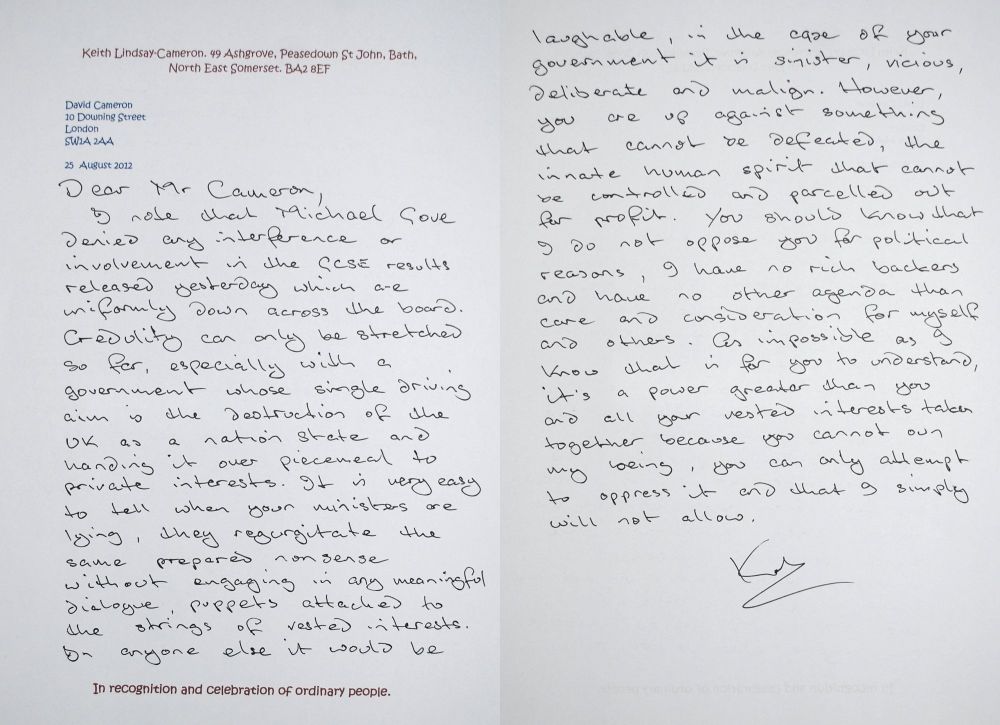 Keith Lindsay-Cameron. 49 Ashgrove, Peasedown St John, Bath,
North East Somerset. BA2 8EF
David Cameron
10 Downing Street
London
SW1A 2AA
25 August 2012
Dear Mr Cameron,
I note that Michael Gove
denied any interference or
involvement in the GCSE results
released yesterday which are
uniformly down across the board.
Credulity can only be stretched
so far, especially with a
government whose single driving
aim is the destruction of the
UK as a nation state and
handing it over piecemeal to
private interests. It is very easy
to tell when your ministers are
lying, they regurgitate the
same prepared nonsense
without engaging in any meaningful
dialogue, puppets attached to
the strings of vested interests.
In anyone else it would be
In recognition and celebration of ordinary people.
laughable, in the case of your
government it is sinister, vicious,
deliberate and malign. However,
you are up against something
that cannot be defeated, the
innate human spirit that cannot
be controlled and parcelled out
for profit. You should know that
I do not oppose you for political
reasons, I have no rich backers
and have no other agenda than
care and consideration for myself
and others. As impossible as I
know that is for you to understand,
it's a power greater than you
and all your vested interests taken
together because you cannot own
my being, you can only attempt
to oppress it and that I simply
will not allow.